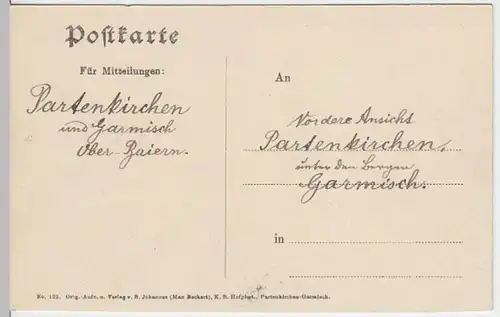 Postkarte
Für Mitteilungen:
Partenkirchen
und Garmisch
Ober-Baiern.
An
Vordere Ansicht
Partenkirchen,
unter den Bergen
Garmisch.
in
No. 122. Orig.-Aufn. u. Verlag v. B. Johannes (Max Beckert), K. B. Hofphot., Partenkirchen-Garmisch.